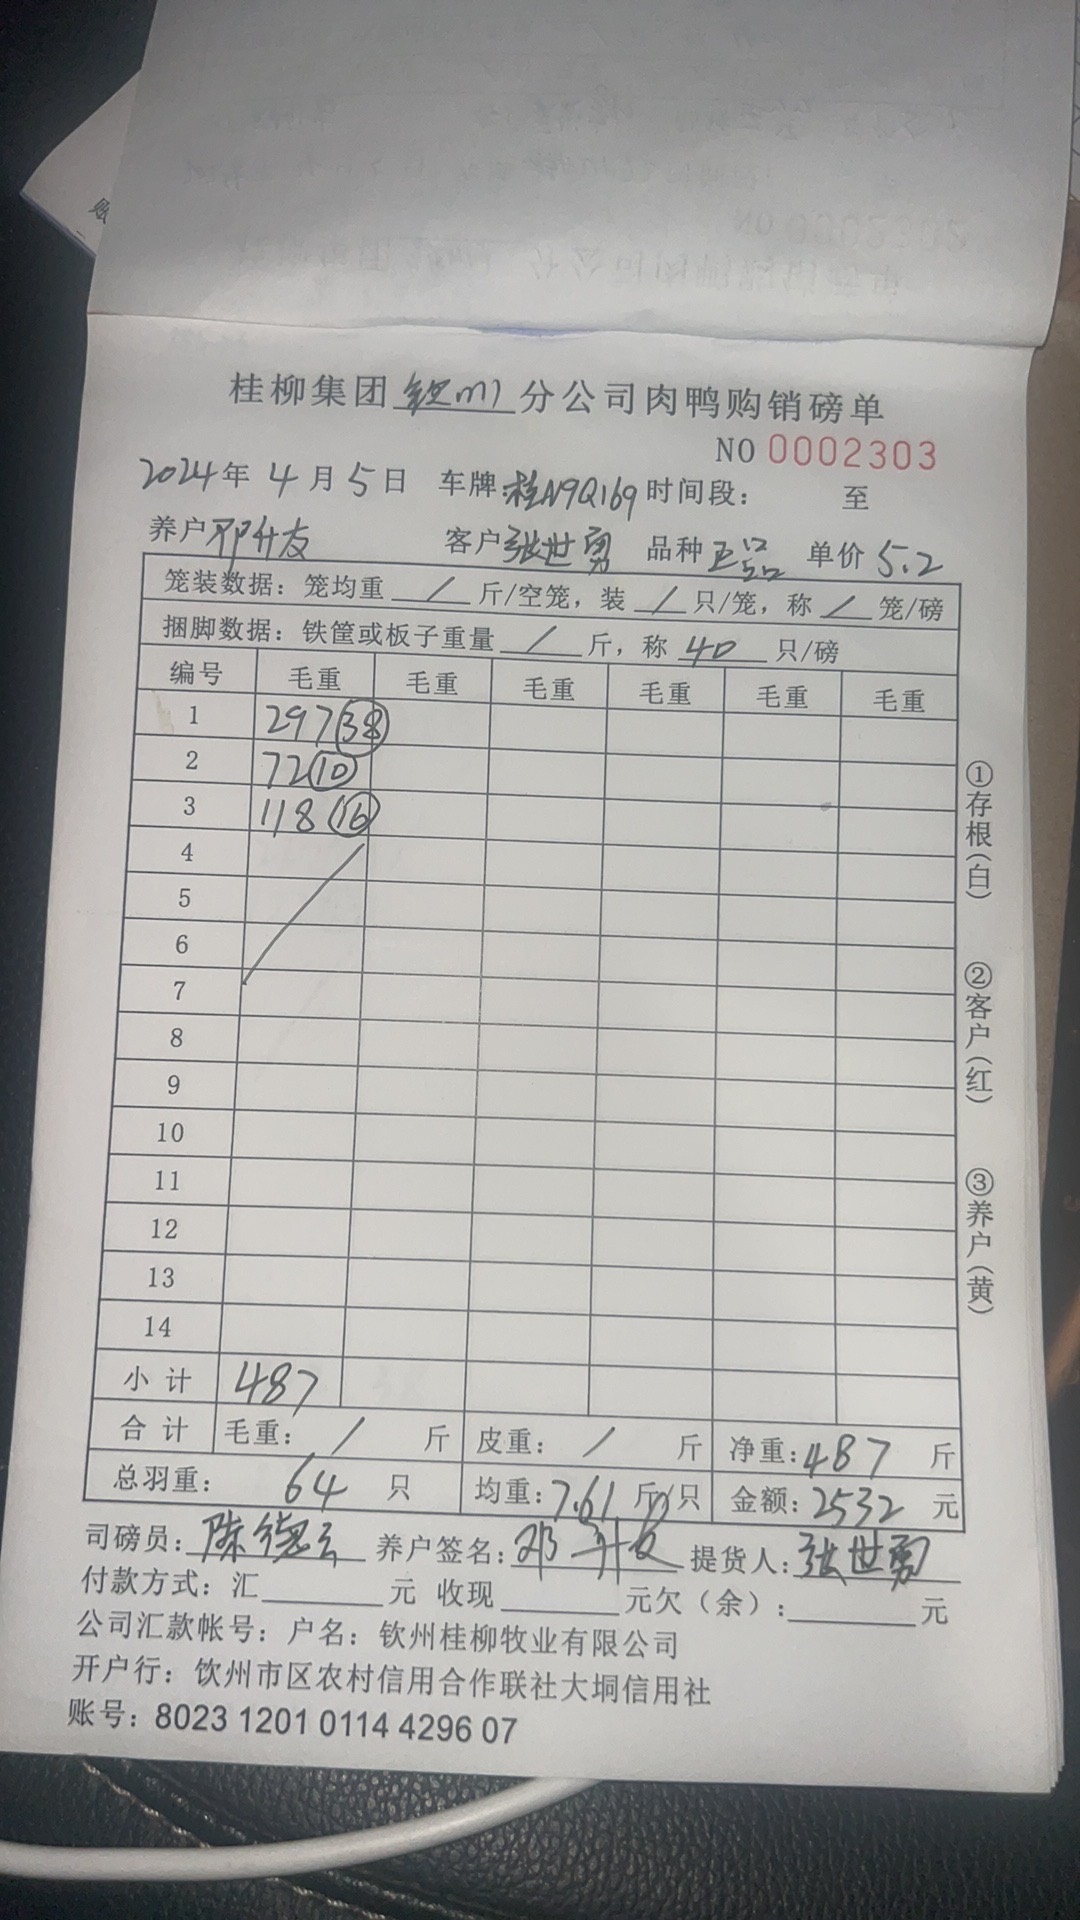 桂柳集团钦州分公司肉鸭购销磅单
NO 0002303
2024年 4月 5日 车牌:桂A9Q169 时间段: 至
养户 邓升友 客户 张世勇 品种 正品 单价 5.2
笼装数据: 笼均重 / 斤/空笼, 装 / 只/笼, 称 / 笼/磅
捆脚数据: 铁筐或板子重量 / 斤, 称 40 只/磅
编号 毛重 毛重 毛重 毛重 毛重 毛重
1 297 (38)
2 72 (10)
3 118 (16)
4
5
6
7
8
9
10
11
12
13
14
小计 487
合计 毛重: / 斤 皮重: / 斤 净重: 487 斤
总羽重: 64 只 均重: 7.61 斤/只 金额: 2532 元
司磅员: 陈德云 养户签名: 邓升友 提货人: 张世勇
付款方式: 汇 元 收现 元欠(余): 元
公司汇款帐号: 户名: 钦州桂柳牧业有限公司
开户行: 饮州市区农村信用合作联社大垌信用社
账号: 8023 1201 0114 4296 07
①存根(白)
②客户(红)
③养户(黄)